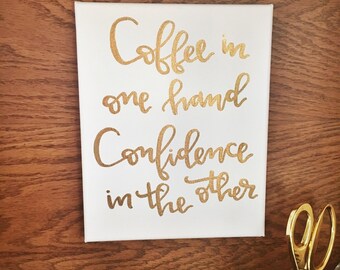 Coffee in
one hand
Confidence
in the other